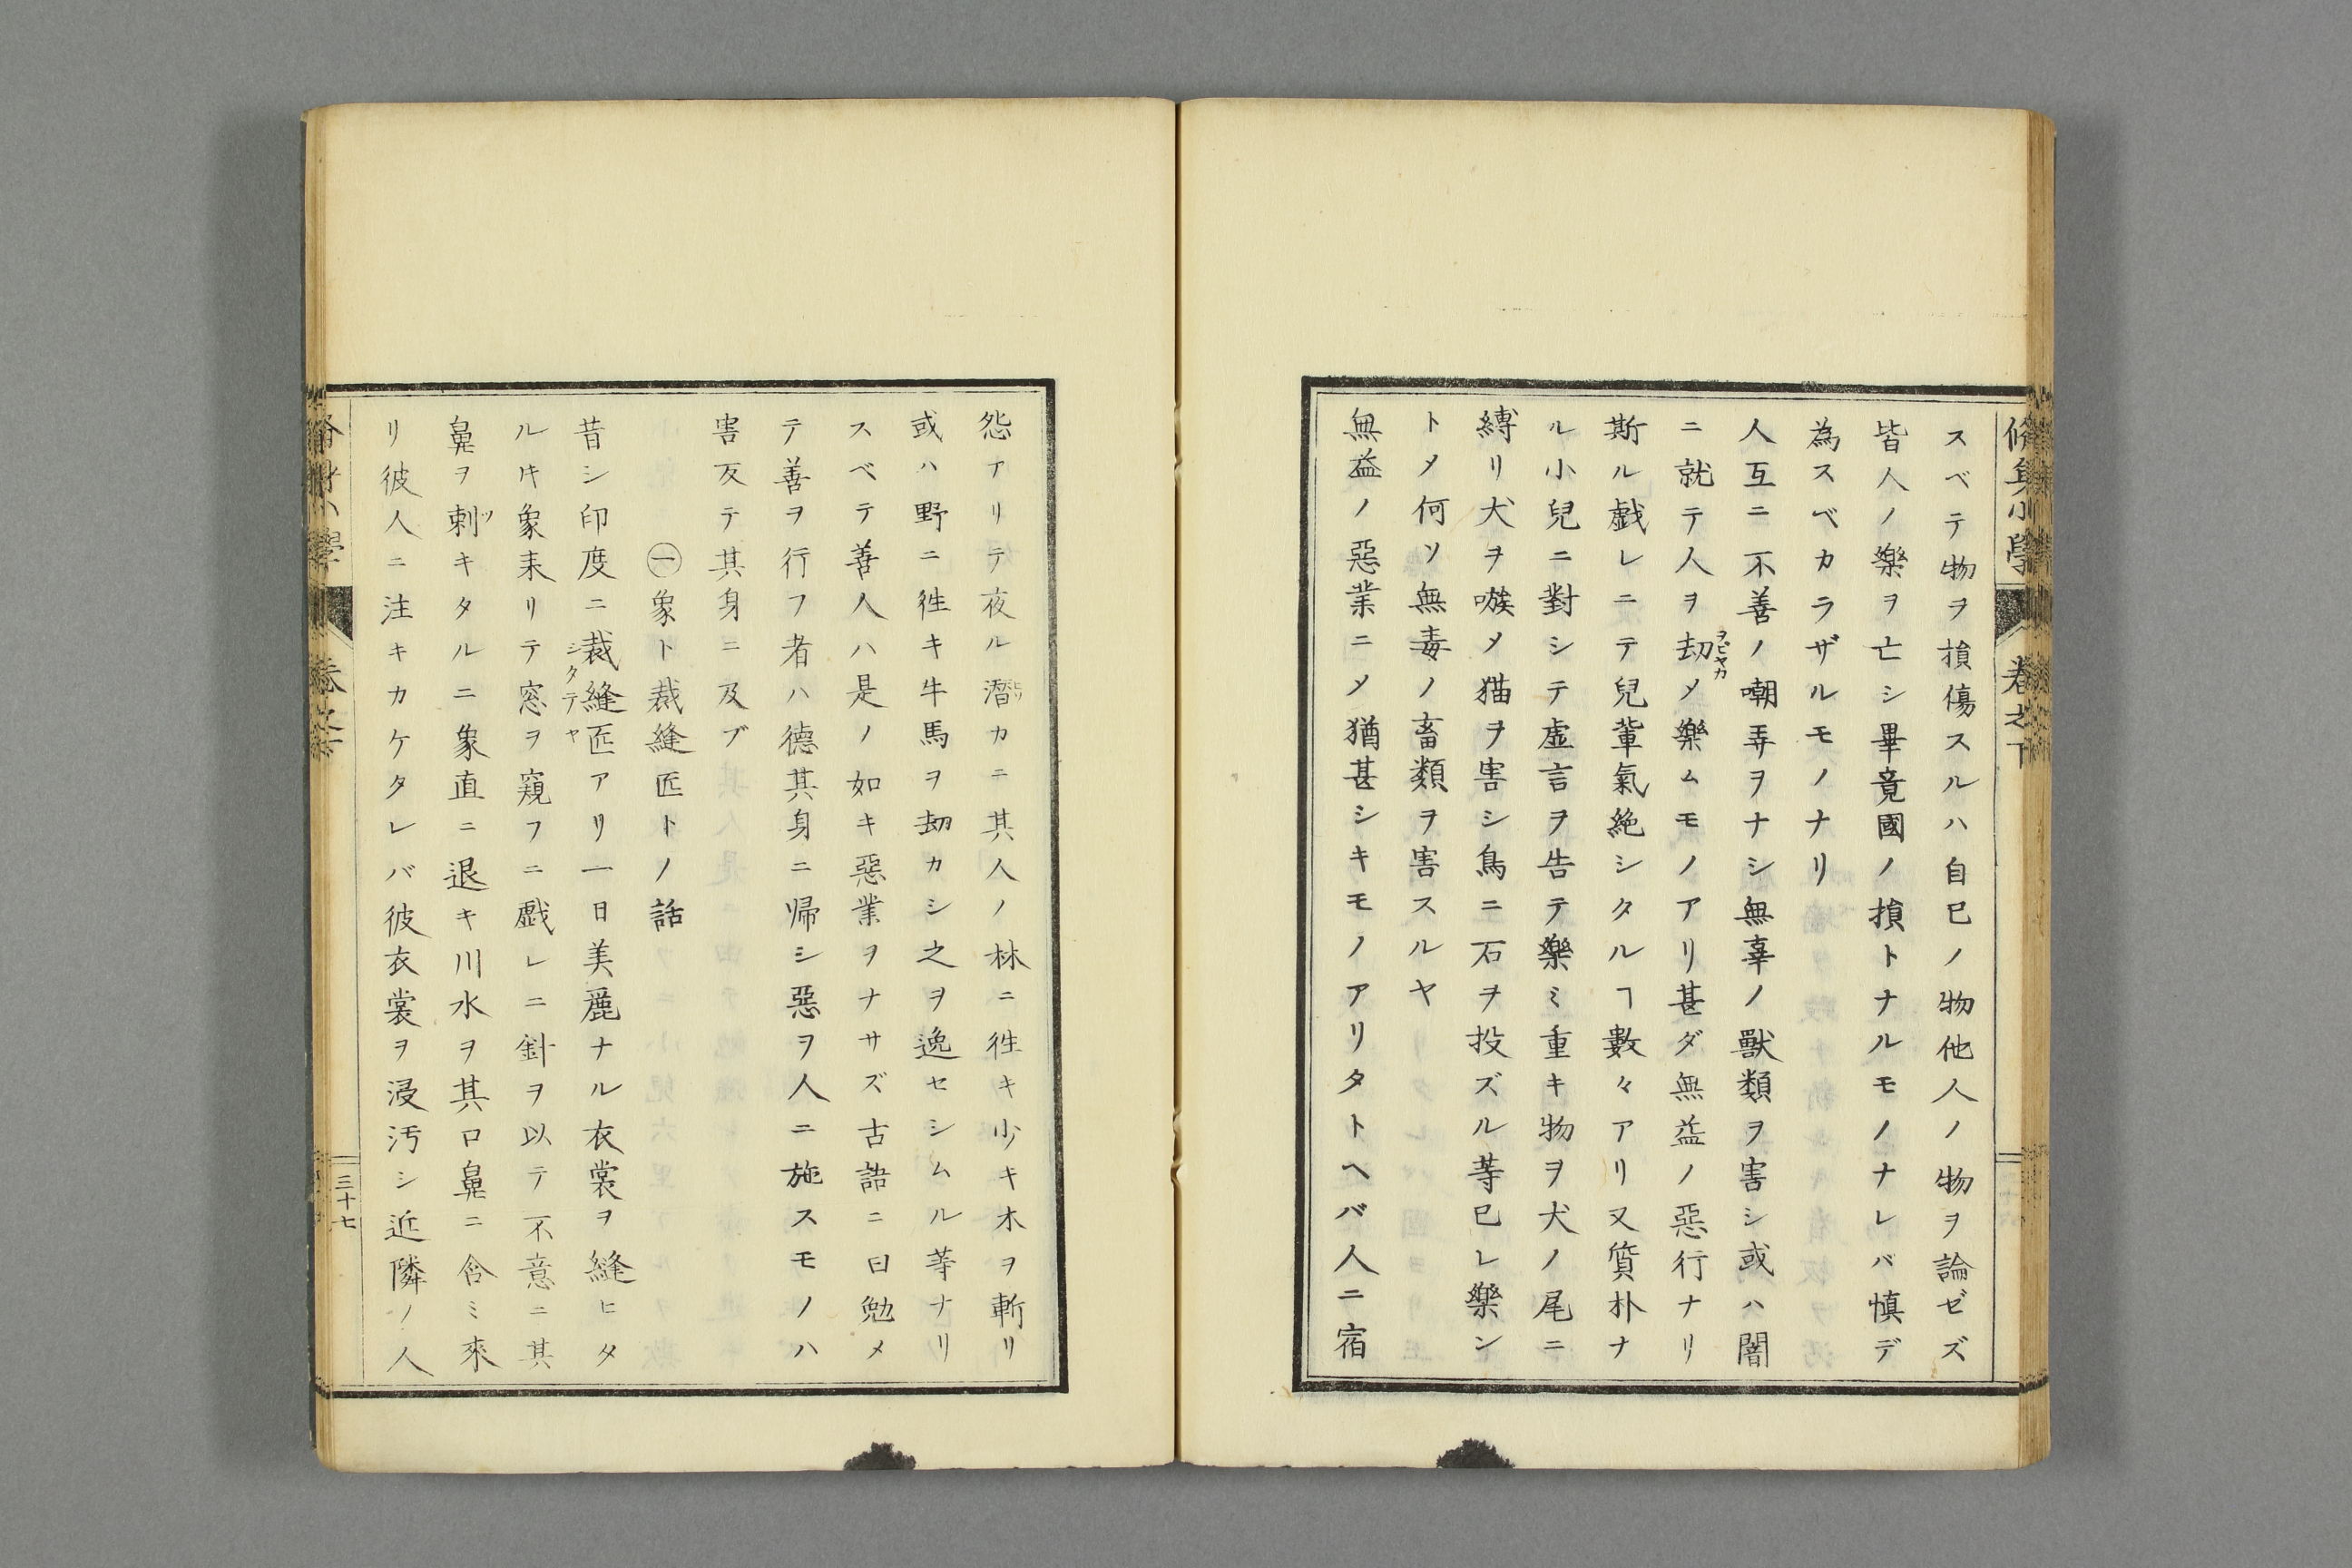 スベテ物ヲ損傷スルハ自己ノ物他人ノ物ヲ論ゼズ
皆人ノ樂ヲ亡シ畢竟國ノ損トナルモノナレバ慎デ
為スベカラザルモノナリ
人互ニ不善ノ嘲弄ヲナシ無辜ノ獸類ヲ害シ或ハ闇
ニ就テ人ヲ劫メ樂ムモノアリ甚ダ無益ノ惡行ナリ
ヲビヤカ
斯ル戯レニテ兒輩氣絶シタルヿ數々アリ又質朴ナ
ル小兒ニ對シテ虚言ヲ告テ樂ミ重キ物ヲ犬ノ尾ニ
縛リ犬ヲ嗾メ猫ヲ害シ鳥ニ石ヲ投ズル等已レ樂ン
トメ何ソ無毒ノ畜類ヲ害スルヤ
無益ノ惡業ニメ猶甚シキモノアリタトヘバ人ニ宿
怨アリテ夜ル潛カニ其人ノ林ニ徃キ少キ木ヲ斬リ
或ハ野ニ徃キ牛馬ヲ劫カシ之ヲ逸セシムル等ナリ
スベテ善人ハ是ノ如キ惡業ヲナサズ古語ニ曰勉メ
テ善ヲ行フ者ハ德其身ニ帰シ惡ヲ人ニ施スモノハ
害反テ其身ニ及ブ
㊀象ト裁縫匠トノ話
昔シ印度ニ裁縫匠アリ一日美麗ナル衣裳ヲ縫ヒタ
シタテヤ
ルキ象来リテ窓ヲ窺フニ戯レニ針ヲ以テ不意ニ其
鼻ヲ刺キタルニ象直ニ退キ川水ヲ其口鼻ニ含ミ來
ツ
リ彼人ニ注キカケタレバ彼衣裳ヲ浸汚シ近隣ノ人
脩身小學
卷之下
三十七